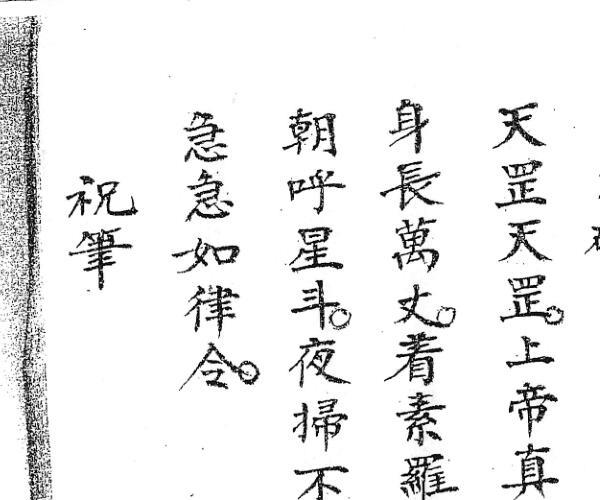 天罡天罡。上帝真
身長萬丈。着素羅
朝呼星斗。夜掃不
急急如律令。
祝筆